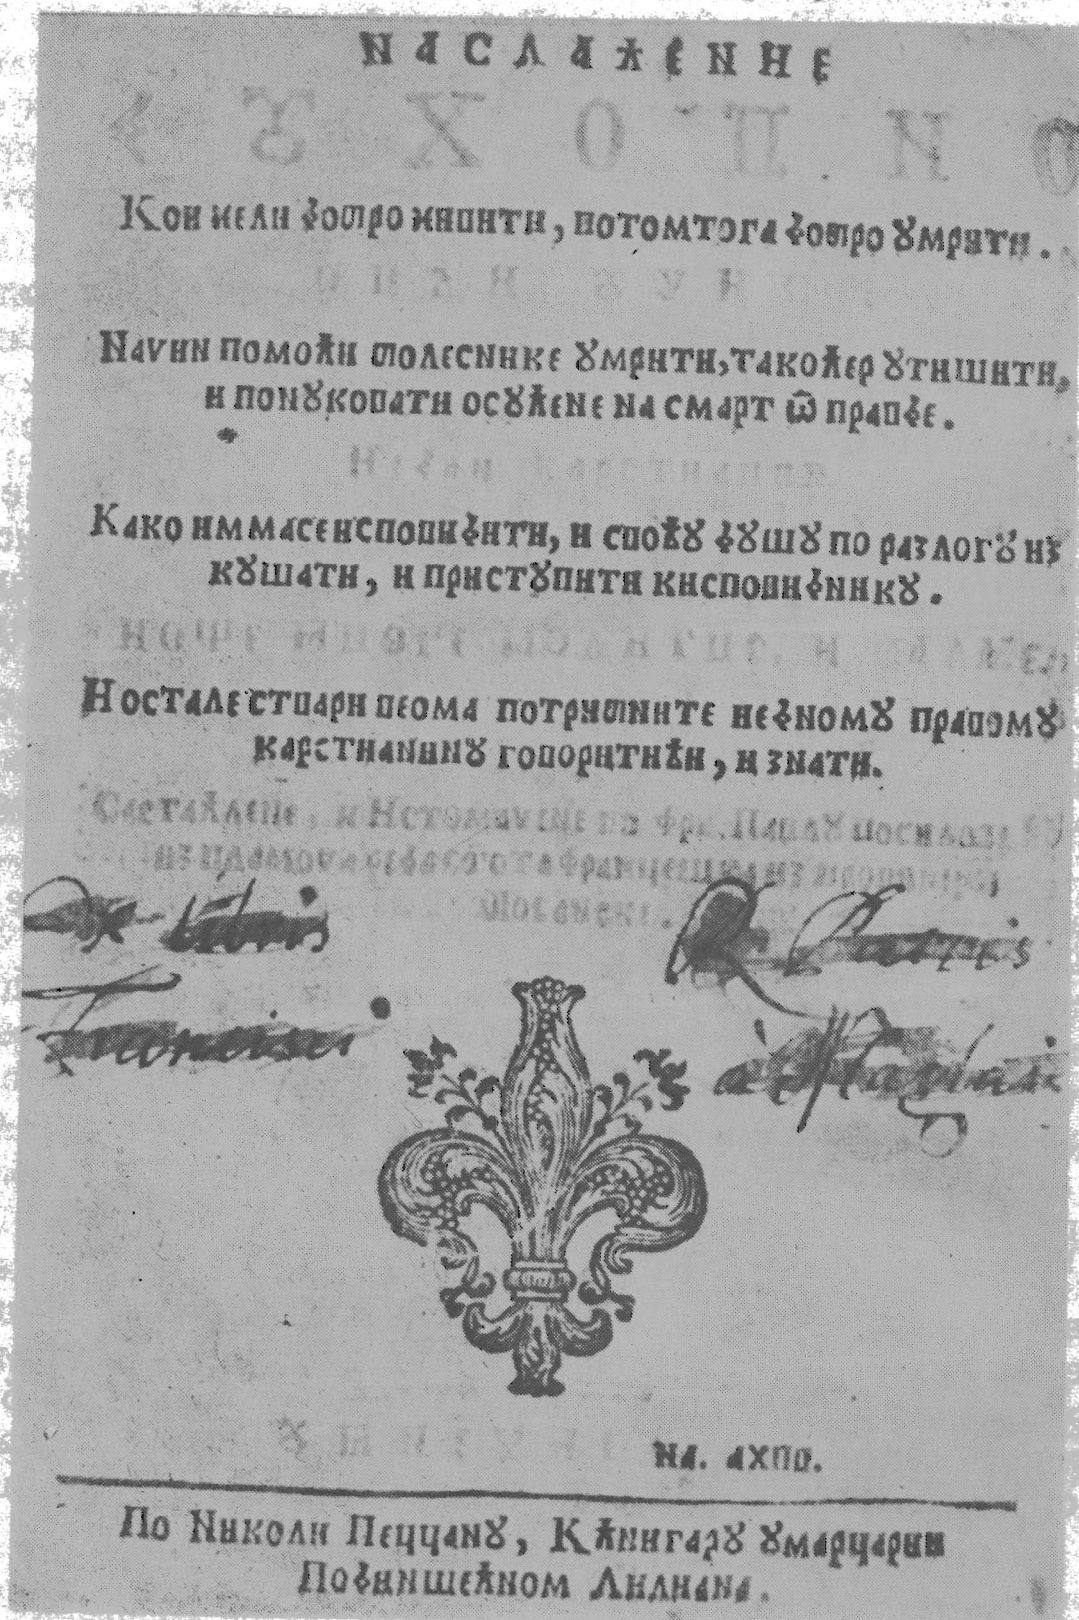 НАСЛАꙈЕНИЕ
Кои жели добро живити, потомтога добро ꙋмрити.
Начин помоꙉи болеснике ꙋмрити, такоꙉер ꙋтишити,
и понꙋковати осꙋꙉене на смарт ѿ правде.
Како иммасеисповидити, и своꙉꙋ дꙋшꙋ по разлогꙋ из
кꙋшати, и пристꙋпити кисповидникꙋ.
И остале ствари веома потрибните иедномꙋ правомꙋ
карстианинꙋ говоритиꙉи, и знати.
Ex libris Patris
Francisci
на. ахпв.
По Николи Пеццанꙋ, Кꙉнигарꙋ ꙋмарцарии
Подинишеꙉном Лилиана.